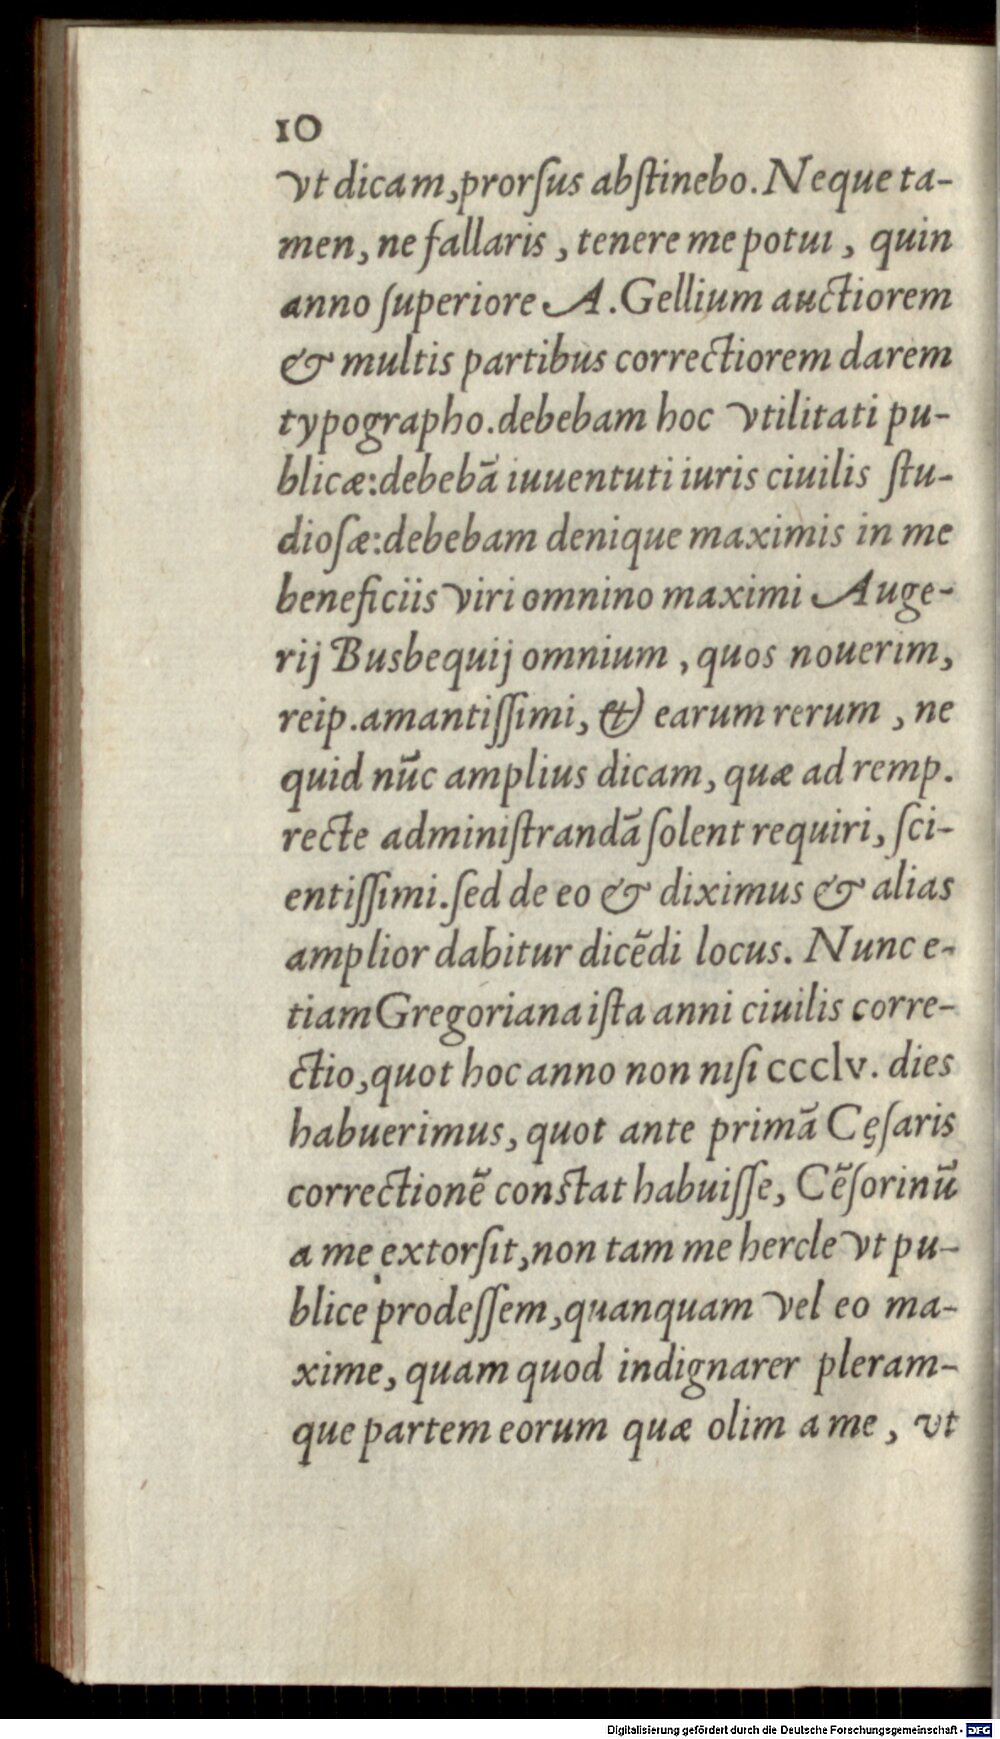 10
vt dicam,prorſus abſtinebo. Neque ta-
men, ne fallaris , tenere me potui , quin
anno ſuperiore A. Gellium auctiorem
& multis partibus correctiorem darem
typographo. debebam hoc vtilitati pu-
blicæ: debebā iuuentuti iuris ciuilis ſtu-
dioſæ: debebam denique maximis in me
beneficiis viri omnino maximi Auge-
rij Busbequij omnium , quos nouerim,
reip. amantiſſimi, & earum rerum , ne
quid nūc amplius dicam, quæ ad remp.
recte adminiſtrandā ſolent requiri, ſci-
entiſſimi. ſed de eo & diximus & alias
amplior dabitur dicēdi locus. Nunc e-
tiam Gregoriana iſta anni ciuilis corre-
ctio, quot hoc anno non niſi ccclv. dies
habuerimus, quot ante primā Cęſaris
correctionē constat habuiſſe, Cēſorinū
a me extorſit, non tam me hercle vt pu-
blice prodeſſem, quanquam vel eo ma-
xime, quam quod indignarer pleram-
que partem eorum quæ olim a me , vt
Digitalisierung gefördert durch die Deutsche Forschungsgemeinschaft - DFG